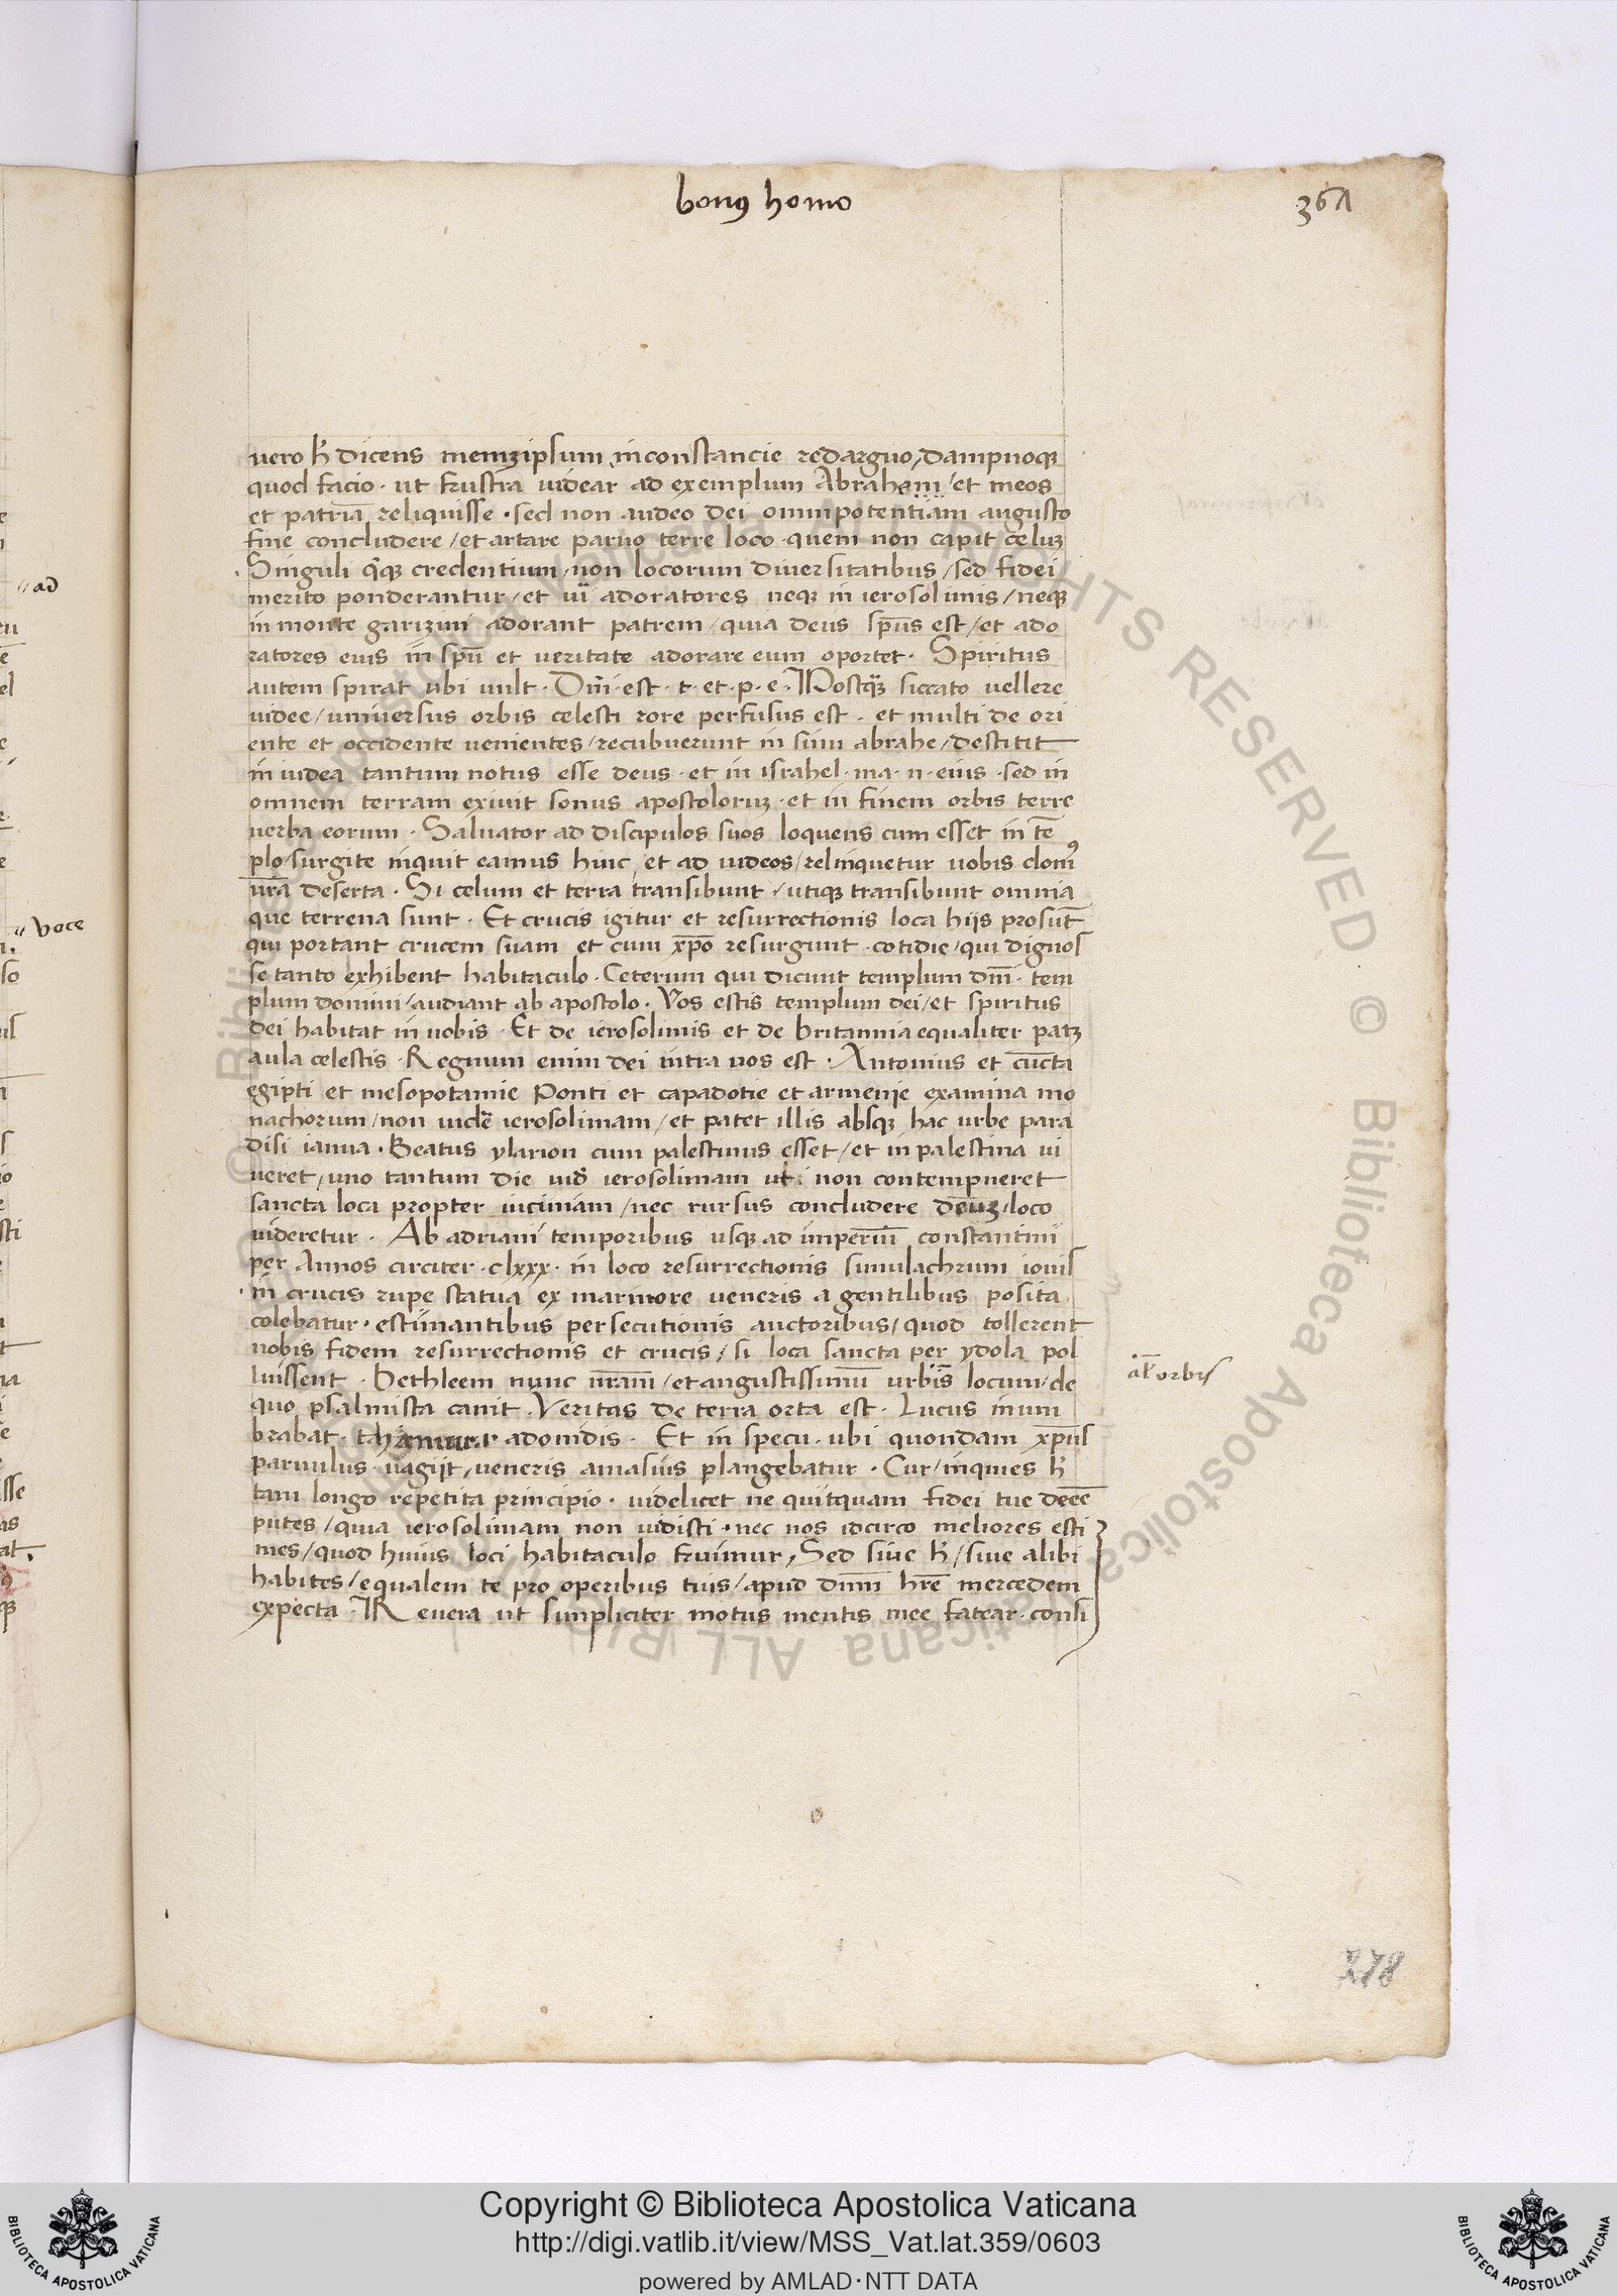 bonꝰ homo
361
uero h̃ dicens memꝫipsum inconstancie redarguo, dampnoqꝫ
quod facio · ut frustra uidear ad exemplum Abrahami / et meos
et patriã reliquisse · sed non audeo dei omnipotentiam angusto
fine concludere / et artare paruo terre loco quem non capit celuꝫ
Singuli q̃qꝫ credentium / non locorum diuersitatibus / sed fidei
merito ponderantur / et ũi adoratores neqꝫ in ierosolimis / neqꝫ
in monte garizim adorant patrem / quia deus sp̃us est / et ado
ratores eius in sp̃u et ueritate adorare eum oportet · Spiritus
autem spirat ubi uult · Dñi · est · t · et · p · e · Postq̃ꝫ siccato uellere
iudee / uniuersus orbis celesti rore perfusus est · et multi de ori
ente et occidente uenientes / recubuerunt in sinu abrahe / destitit
in iudea tantum notus esse deus · et in israhel · ma · n · eius · sed in
omnem terram exiuit sonus apostoloruꝫ · et in finem orbis terre
uerba eorum · Saluator ad discipulos suos loquens cum esset in tẽ
plo / surgite inquit eamus hinc / et ad iudeos / relinquetur uobis domꝰ
ur̃a deserta · Si celum et terra transibunt / utiqꝫ transibunt omnia
que terrena sunt · Et crucis igitur et resurrectionis loca hijs prosũt
qui portant crucem suam et cum xp̃o resurgunt · cotidie / qui dignos
se tanto exhibent habitaculo · Ceterum qui dicunt templum dñi · tem
plum domini / audiant ab apostolo · Vos estis templum dei / et spiritus
dei habitat in uobis · Et de ierosolimis et de britannia equaliter patꝫ
aula celestis · Regnum enim dei intra uos est · Antonius et cũcta
egipti et mesopotamie Ponti et capadotie et armenie examina mo
nachorum / non uider̃ ierosolimam / et patet illis absqꝫ hac urbe para
disi ianua · Beatus ylarion cum palestinus esset / et in palestina ui
ueret / uno tantum die uid̃ ierosolimam ut non contempneret
sancta loca propter uiciniam / nec rursus concludere deuꝫ / loco
uideretur · Ab adriani temporibus usqꝫ ad imperiũ constantini
per Annos circiter · clxxx · in loco resurrectionis simulachrum iouis
in crucis rupe statua ex marmore ueneris a gentilibus posita
colebatur · estimantibus persecutionis auctoribus / quod tollerent
nobis fidem resurrectionis et crucis / si loca sancta per ydola pol
luissent · Bethleem nunc nr̃am / et angustissimũ urbis locum / de
quo psalmista canit · Veritas de terra orta est · Lucus inum
brabat · adonidis · Et in specu · ubi quondam xp̃us
paruulus uagijt / ueneris amasius plangebatur · Cur / inquies h̃
tam longo repetita principio · uidelicet ne quitquam fidei tue deẽe
putes / quia ierosolimam non uidisti · nec nos idcirco meliores esti
mes / quod huius loci habitaculo fruimur / Sed siue h̃ / siue alibi
habites / equalem te pro operibus tuis / apud dñm hr̃e mercedem
expecta · Reuera ut simpliciter motus mentis mee fatear · consi
al̃ orbis
278
ad
voce
Copyright © Biblioteca Apostolica Vaticana
http://digi.vatlib.it/view/MSS_Vat.lat.359/0603
powered by AMLAD · NTT DATA
BIBLIOTECA APOSTOLICA VATICANA
BIBLIOTECA APOSTOLICA VATICANA